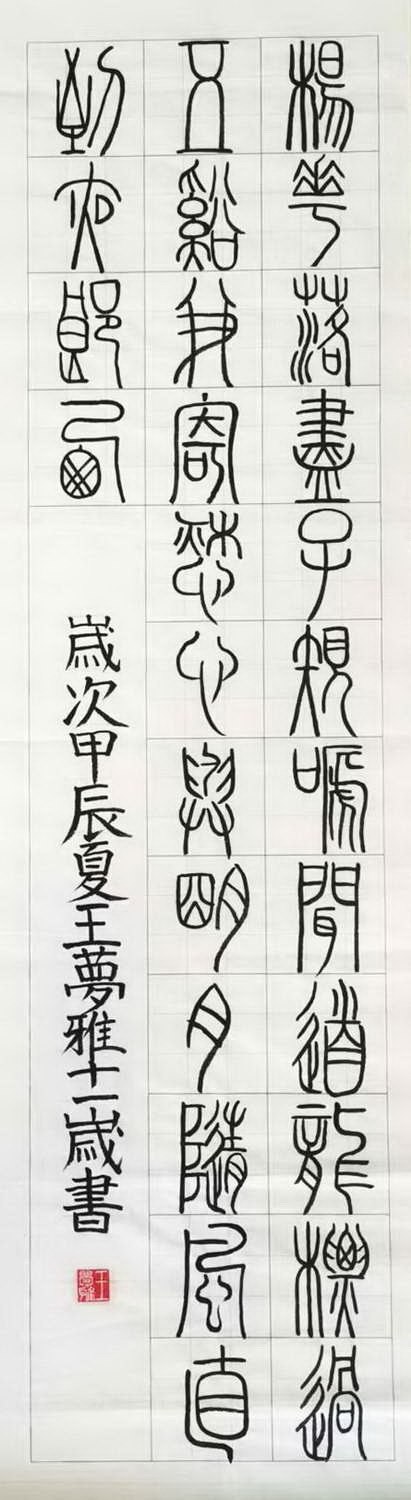 楊華落盡子規嗁聞道龍標過
五谿我寄愁心與明月隨風直
到夜郎西
歲次甲辰夏王夢雅十一歲書
王夢雅